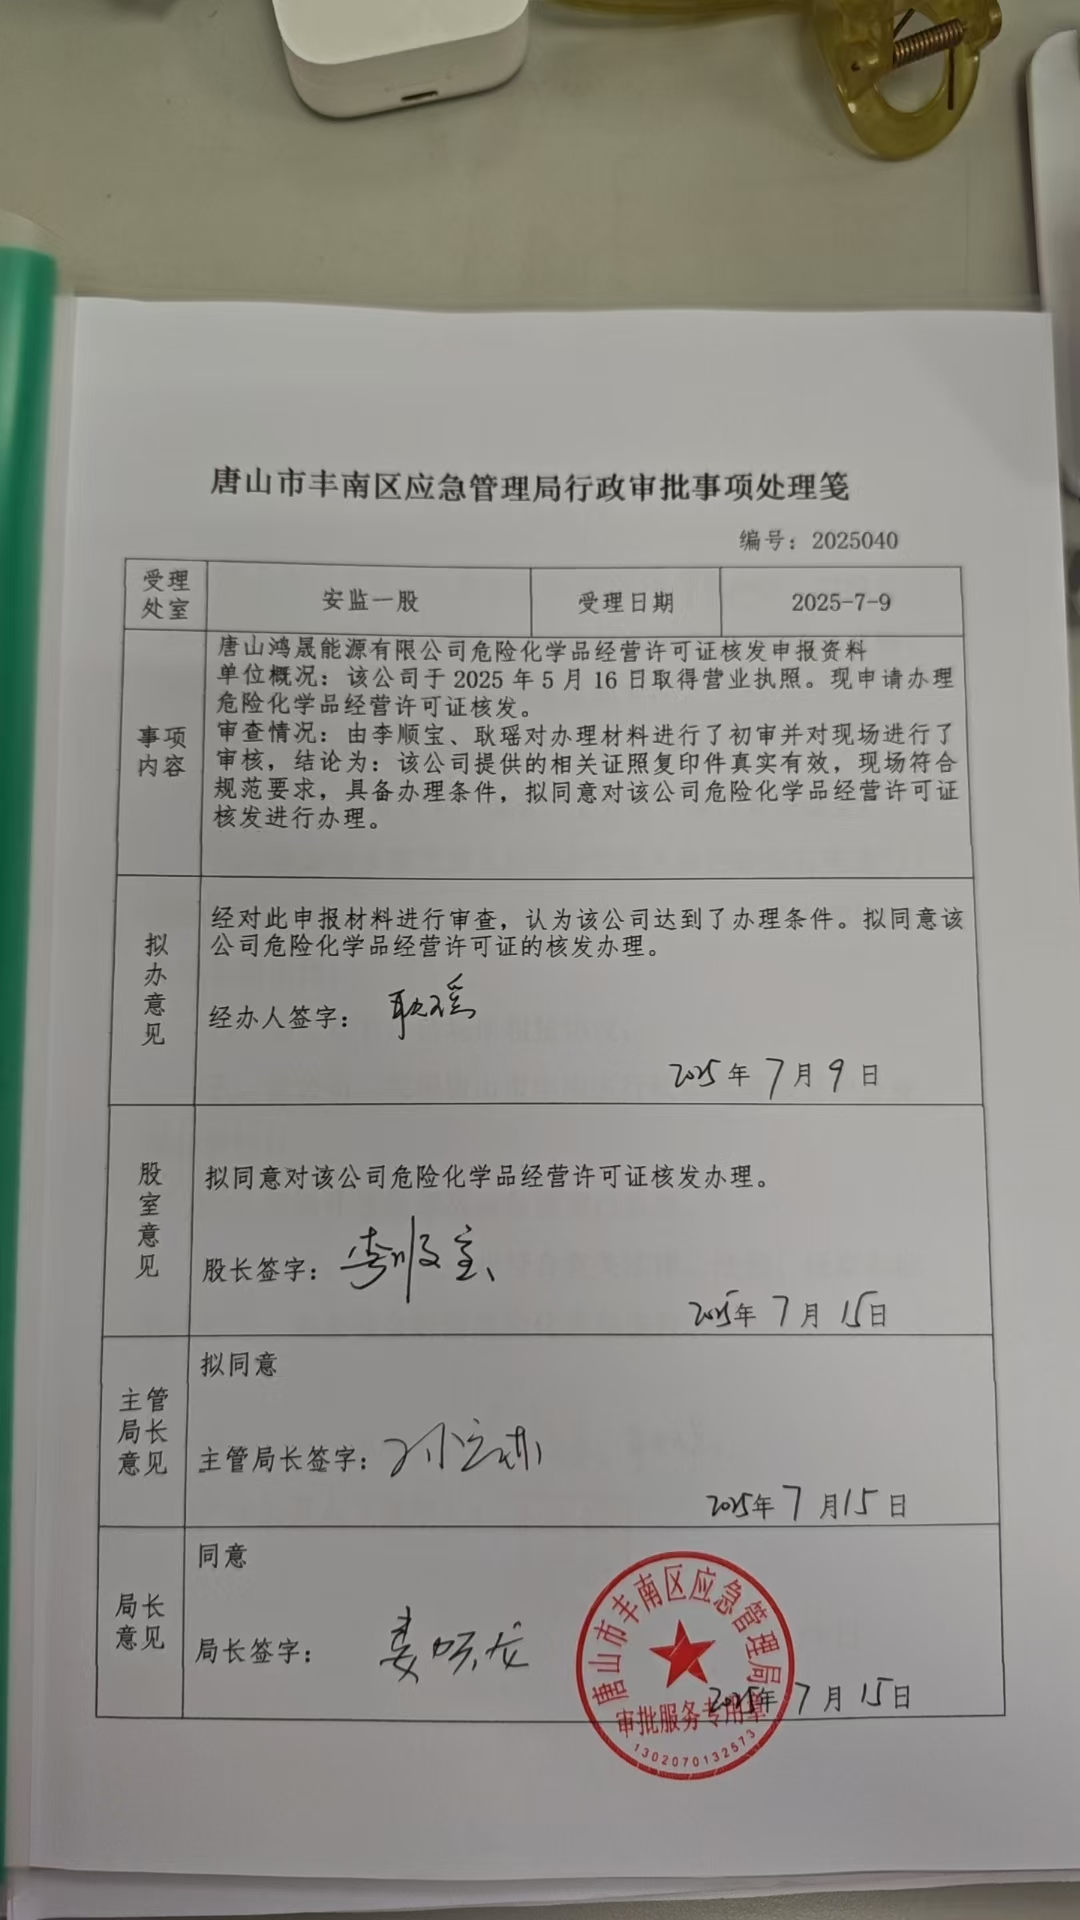 唐山市丰南区应急管理局行政审批事项处理笺
编号：2025040
受理处室
安监一股
受理日期
2025-7-9
事项内容
唐山鸿晟能源有限公司危险化学品经营许可证核发申报资料
单位概况：该公司于 2025 年 5 月 16 日取得营业执照。现申请办理
危险化学品经营许可证核发。
审查情况：由李顺宝、耿瑶对办理材料进行了初审并对现场进行了
审核，结论为：该公司提供的相关证照复印件真实有效，现场符合
规范要求，具备办理条件，拟同意对该公司危险化学品经营许可证
核发进行办理。
拟办意见
经对此申报材料进行审查，认为该公司达到了办理条件。拟同意该
公司危险化学品经营许可证的核发办理。
经办人签字：耿瑶
2025 年 7 月 9 日
股室意见
拟同意对该公司危险化学品经营许可证核发办理。
股长签字：李顺宝
2025年 7 月 15日
主管局长意见
拟同意
主管局长签字：
2025年 7 月 15 日
局长意见
同意
局长签字：
2025年 7 月 15日
唐山市丰南区应急管理局
审批服务专用章
1302070132573